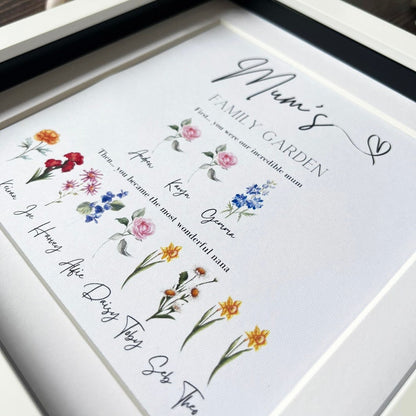 Mum's
FAMILY GARDEN
First... you were our incredible mum
Kaiya Gemma
Then... you became the most wonderful nana
Harvey Alfie Daisy Toby Seb Theo